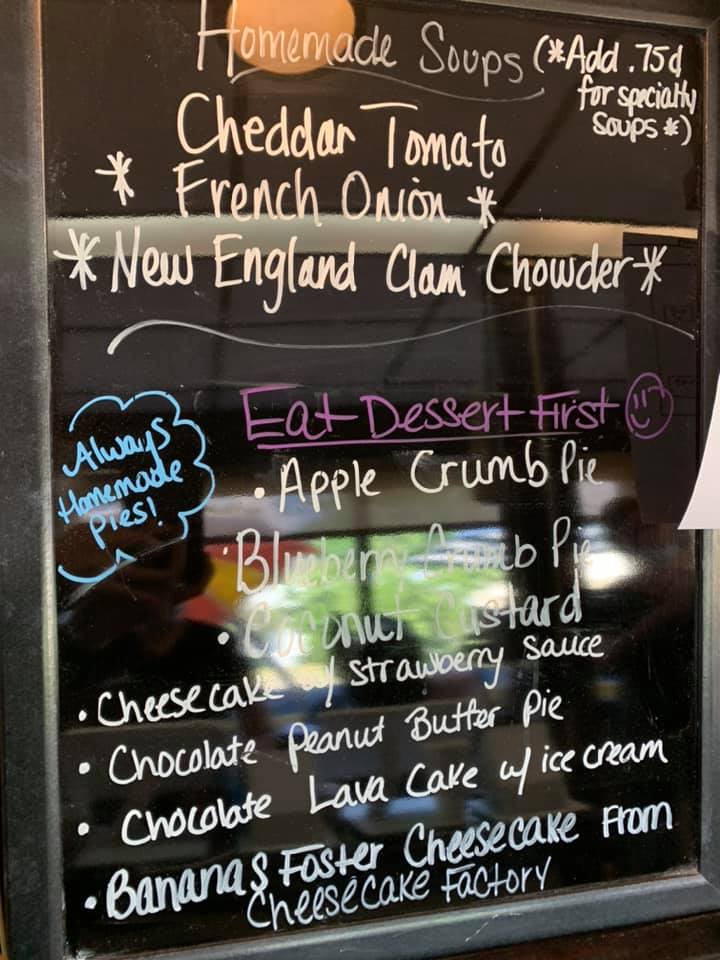 Homemade Soups (*Add .75¢
for specialty
Soups *)
Cheddar Tomato
* French Onion *
* New England Clam Chowder *
Eat Dessert First
Always
Homemade
Pies!
• Apple Crumb Pie
• Blueberry Crumb Pie
• Coconut Custard
• Cheesecake w/ strawberry sauce
• Chocolate Peanut Butter Pie
• Chocolate Lava Cake w/ ice cream
• Bananas Foster Cheesecake From
Cheesecake Factory